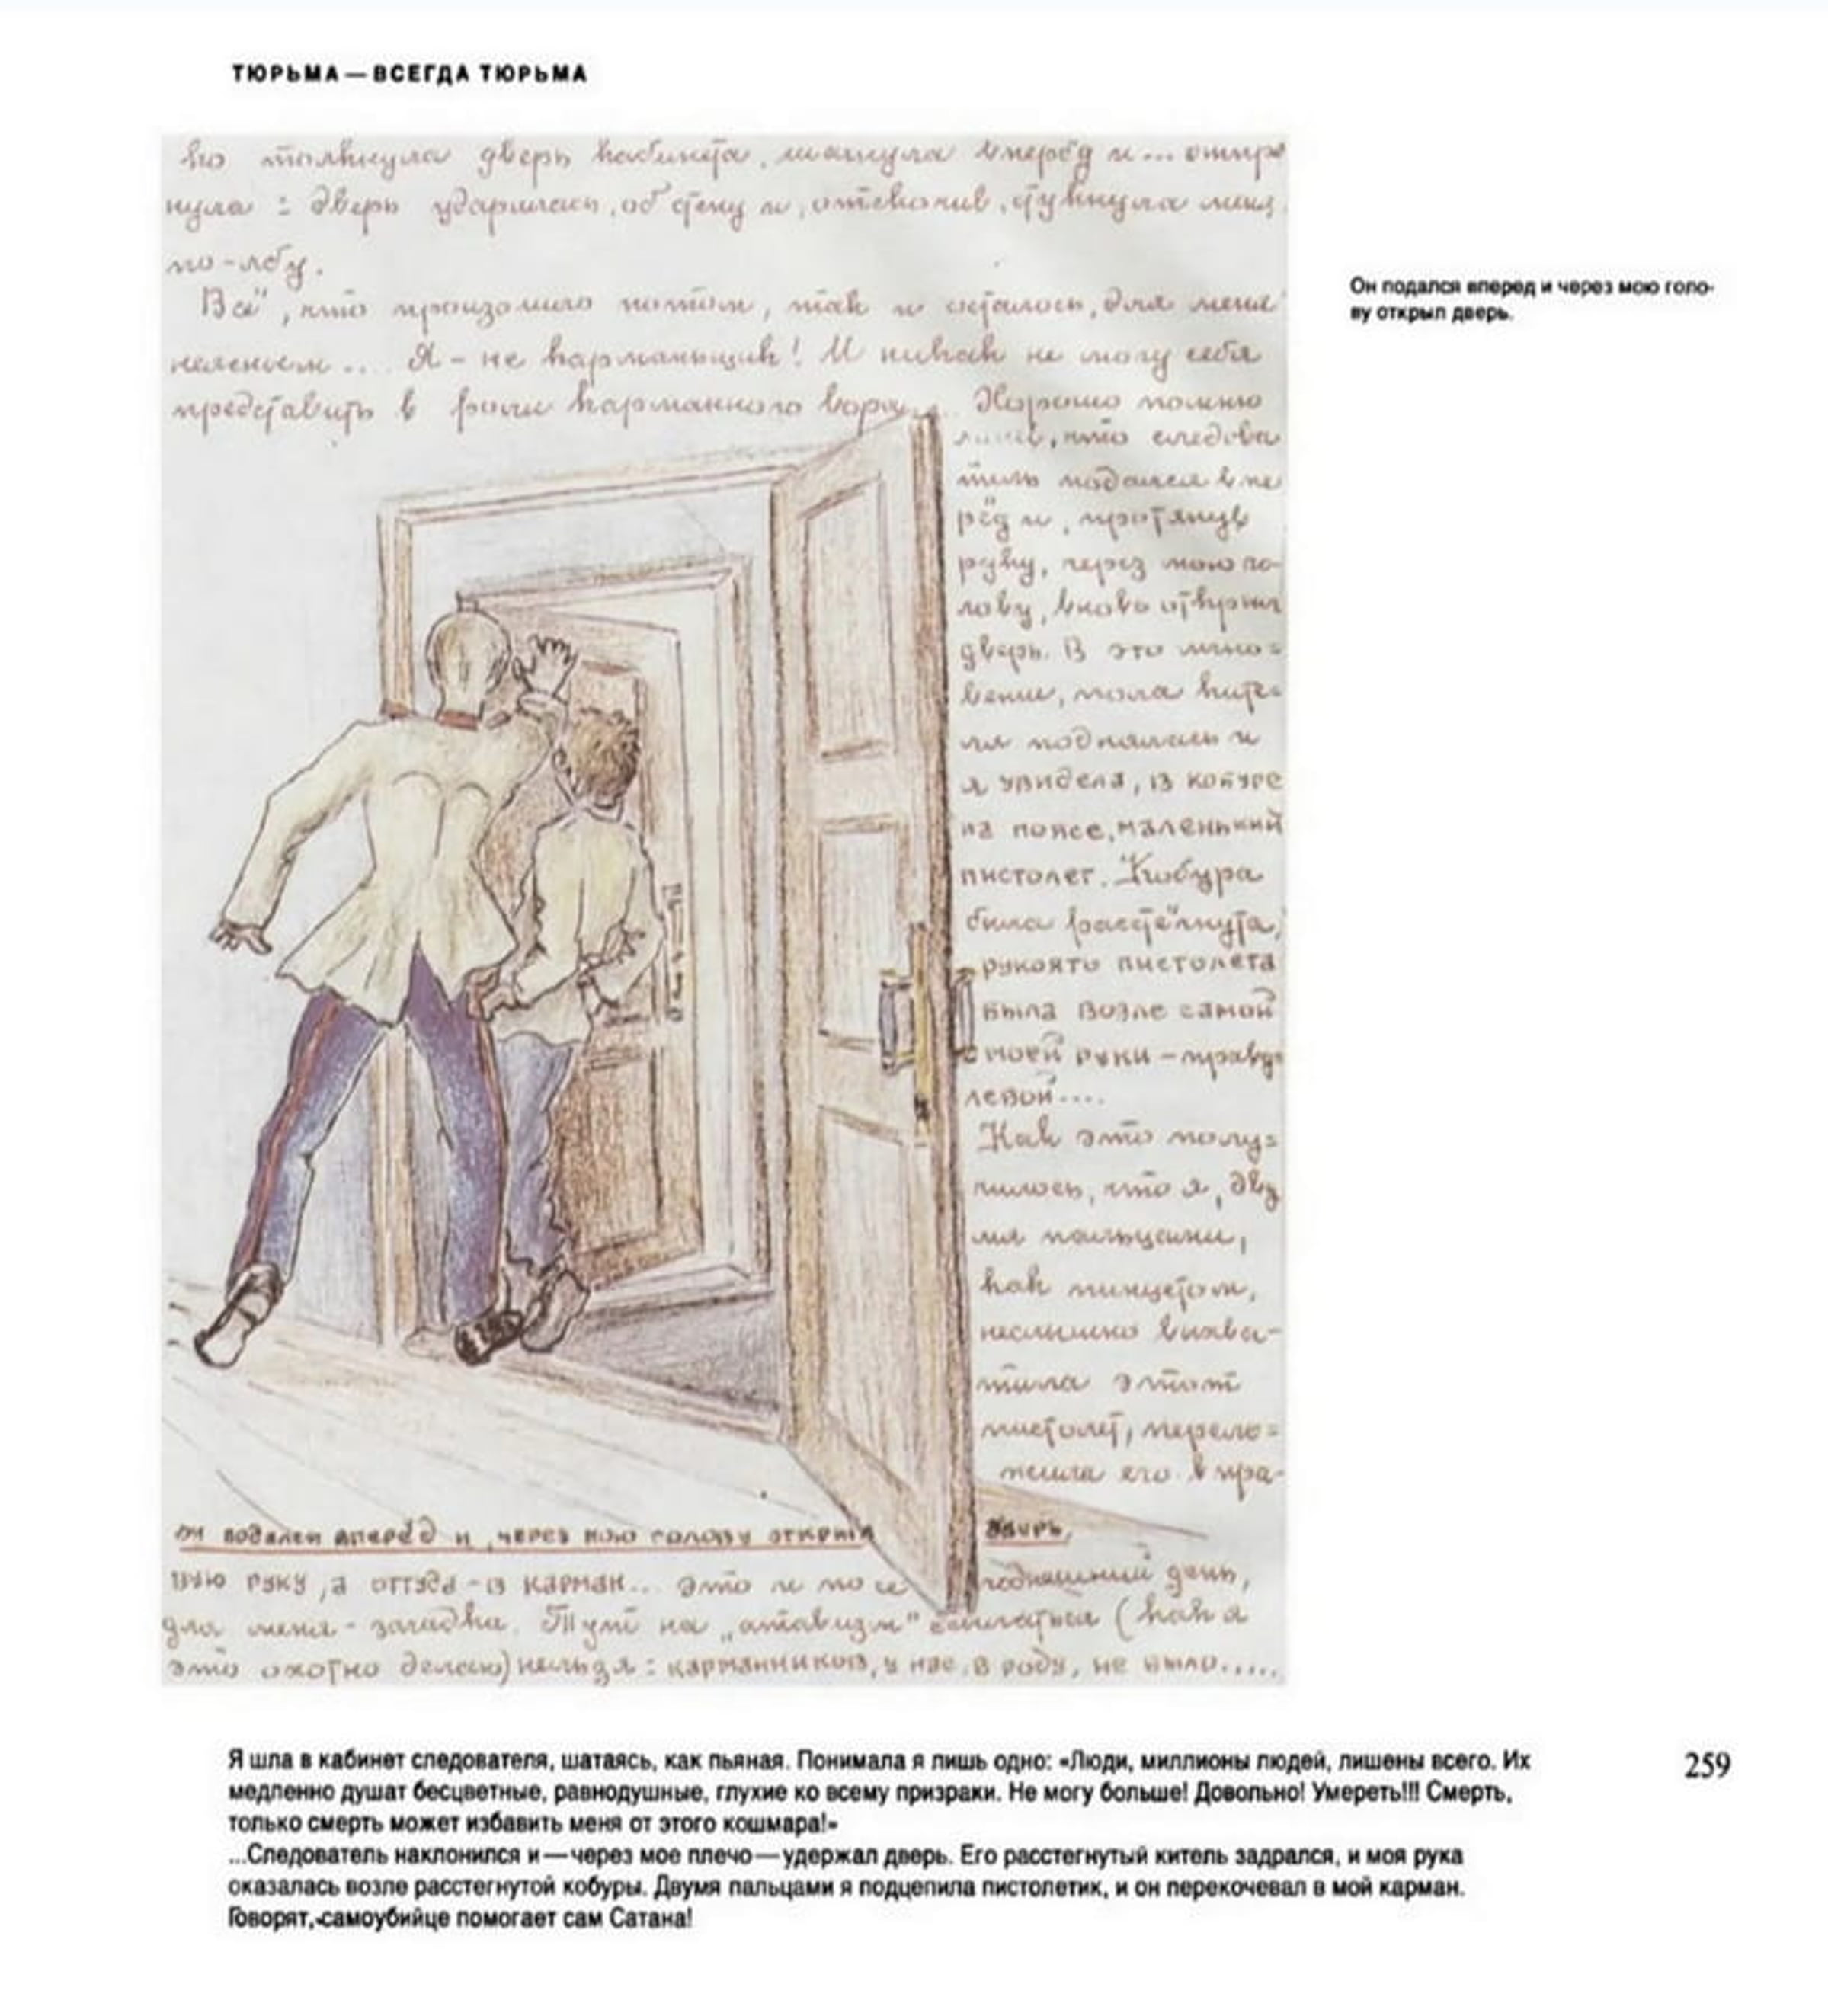 ТЮРЬМА — ВСЕГДА ТЮРЬМА
но толкнула дверь кабинета, шагнула вперёд и... отпря
нула: дверь ударилась, об стену и, отскочив, стукнула меня
по-лбу.
Всё, что произошло потом, так и осталось, для меня
неясным... Я – не карманщик! И никак не могу себя
представить в роли карманного вора... Хорошо помню
лишь, что следова
тель подался впе
рёд и, протянув
руку, через мою го-
лову, вновь открыл
дверь. В это мгно=
вение, пола ките=
ля поднялась и
я увидела, в кобуре
на поясе, маленький
пистолет. Кобура
была расстёгнута,
рукоять пистолета
была возле самой
моей руки – правда
левой....
Как это полу=
чилось, что я, дву
мя пальцами,
как пинцетом,
неслышно выхва-
тила этот
пистолет, перело=
жила его в пра-
он подался вперёд и, через мою голову открыл дверь.
вую руку, а оттуда – в карман... Это и по сегодняшний день,
для меня – загадка. Тут на „атавизм" ссылаться (как я
это охотно делаю) нельзя: карманников, у нас, в роду, не было.....
Он подался вперед и через мою голо-
ву открыл дверь.
Я шла в кабинет следователя, шатаясь, как пьяная. Понимала я лишь одно: «Люди, миллионы людей, лишены всего. Их
медленно душат бесцветные, равнодушные, глухие ко всему призраки. Не могу больше! Довольно! Умереть!!! Смерть,
только смерть может избавить меня от этого кошмара!»
...Следователь наклонился и — через мое плечо — удержал дверь. Его расстегнутый китель задрался, и моя рука
оказалась возле расстегнутой кобуры. Двумя пальцами я подцепила пистолетик, и он перекочевал в мой карман.
Говорят, самоубийце помогает сам Сатана!
259